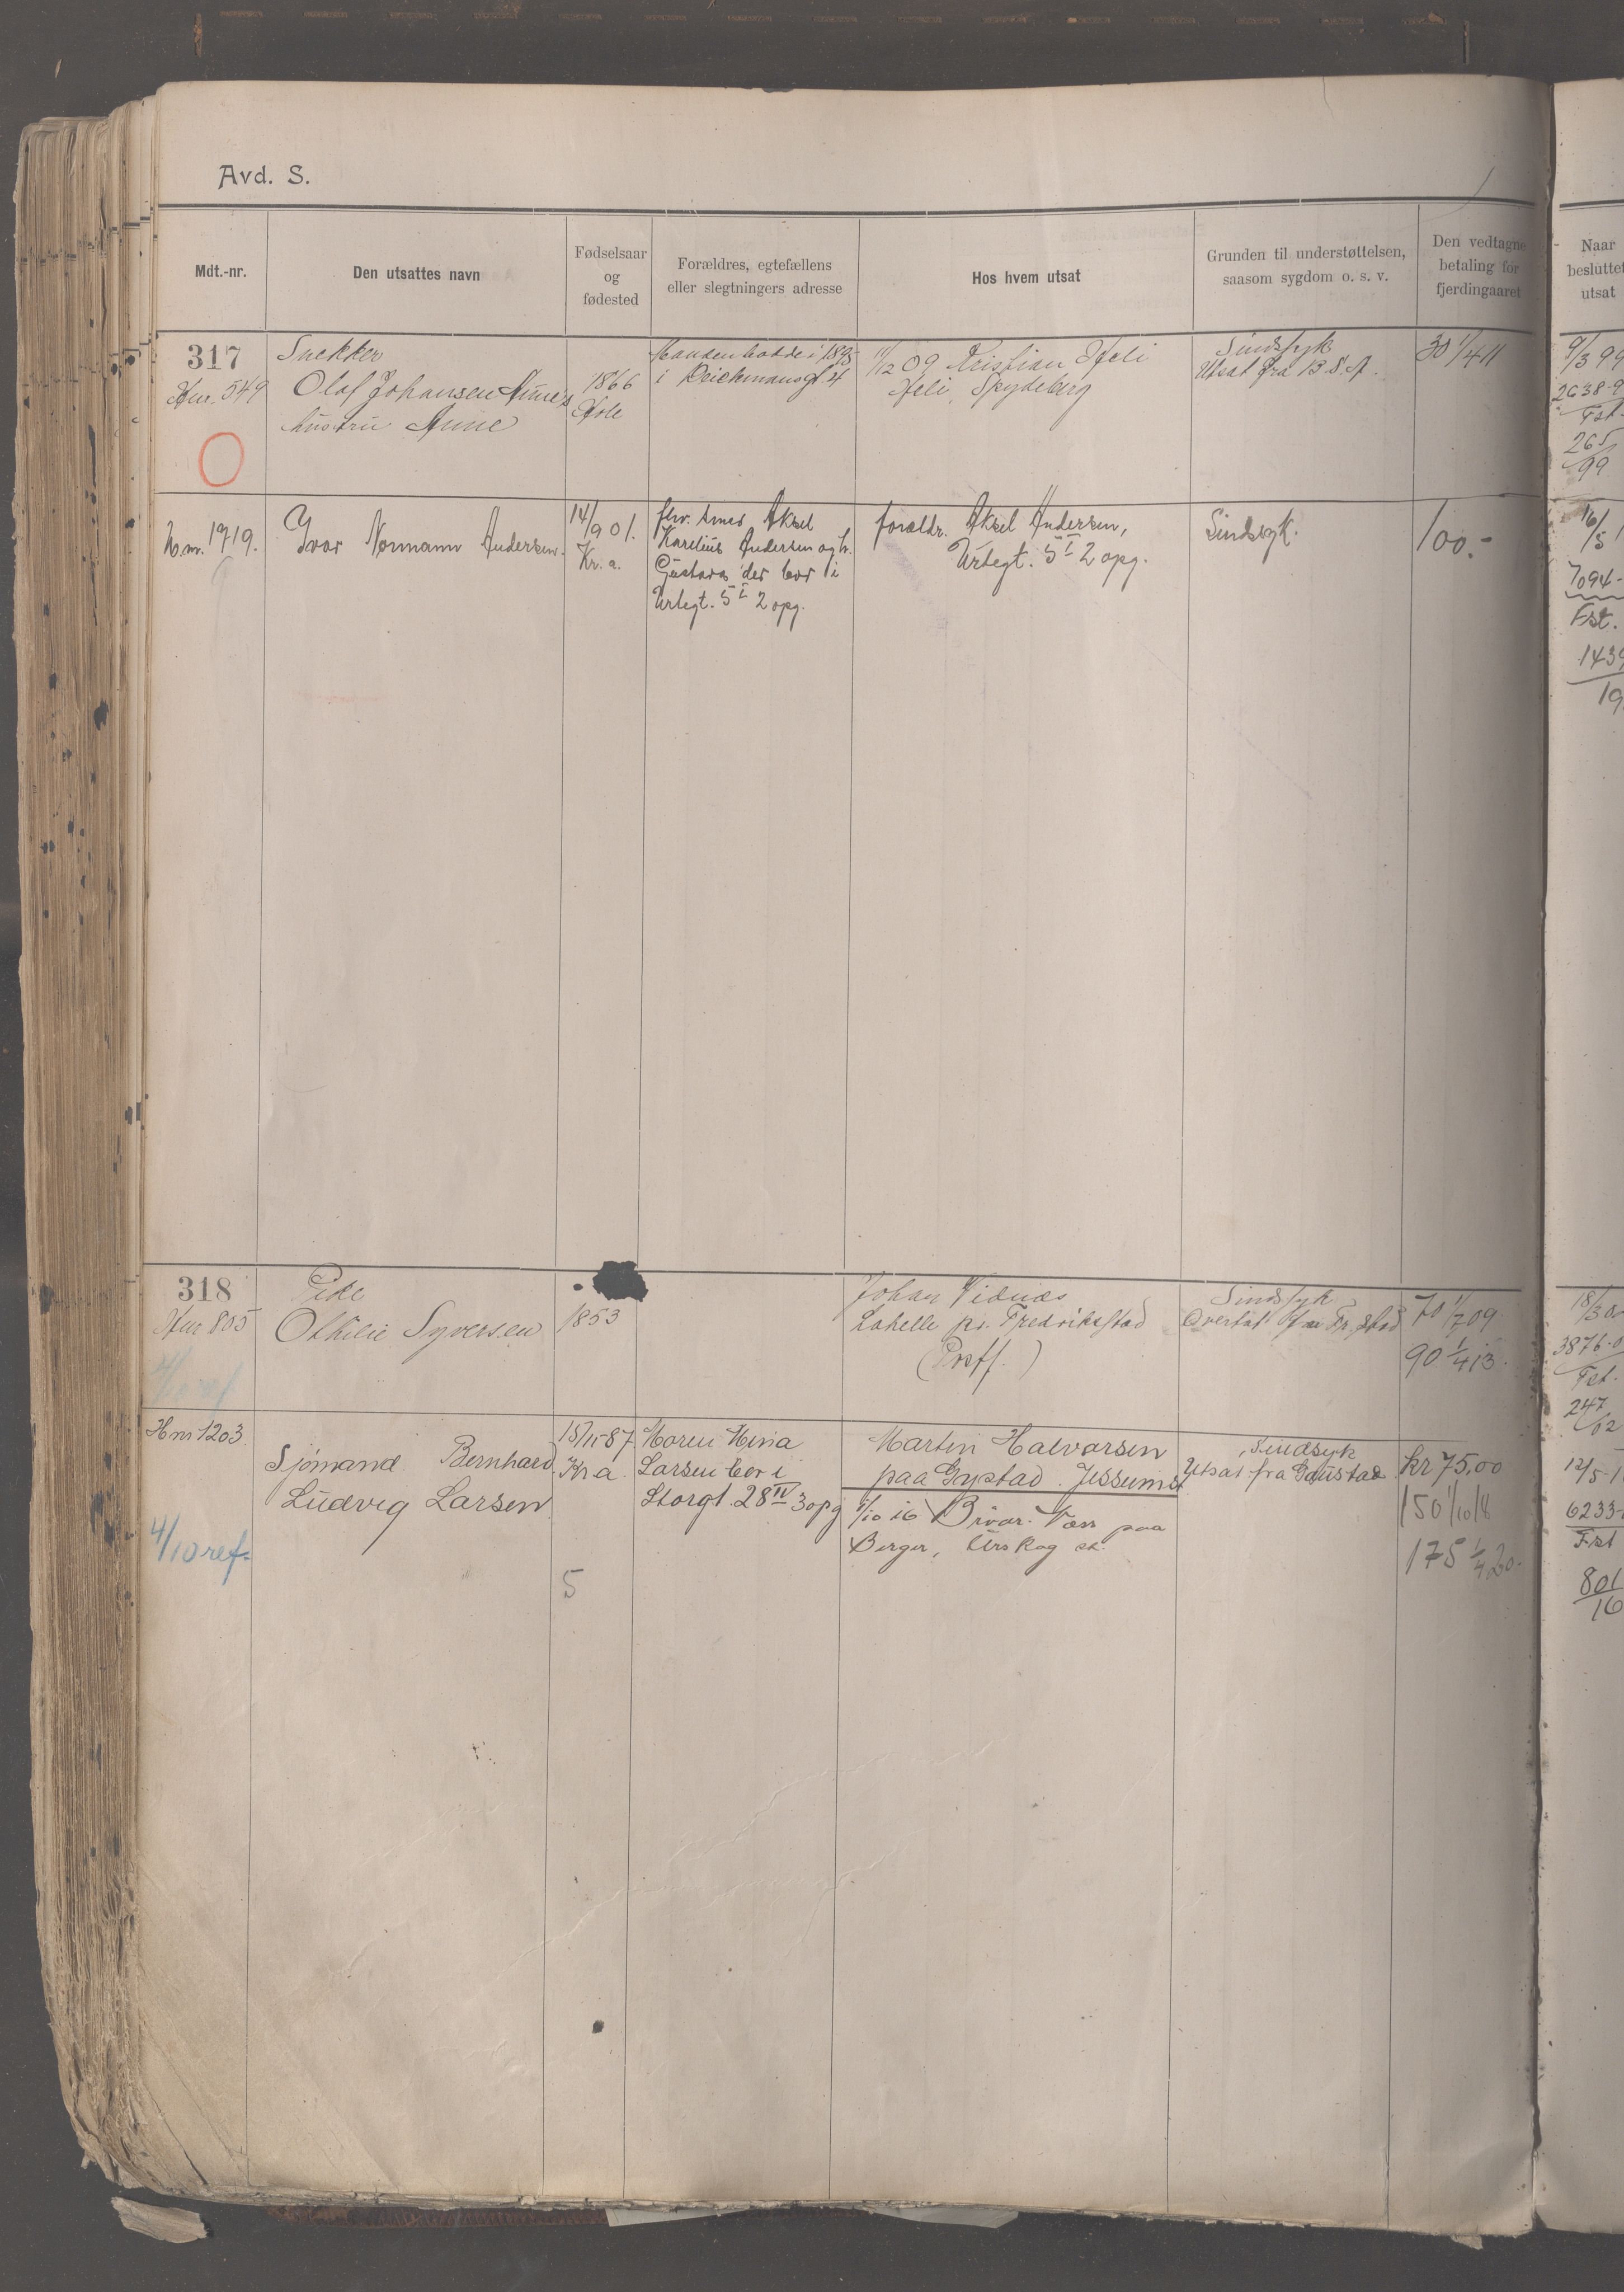 Avd. S.
Mdt.-nr.
Den utsattes navn
Fødselsaar
og
fødested
Forældres, egtefællens
eller slegtningers adresse
Hos hvem utsat
Grunden til understøttelsen,
saasom sygdom o. s. v.
Den vedtagne
betaling for
fjerdingaaret
Naar
besluttet
utsat
317
Hnr. 549
Snekker
Olaf Johansen
hustru Anne
1866
Manden bodde i 1895
i Deichmansgt. 4
1/12 09 Kristian Heli
Heli, Spydeberg
Sindssyk
Utsat fra B.S.A.
30 1/4 11
9/3 99
2638-9
Fst.
265
99
H.nr. 1919.
Ivar Normann Andersen.
14/9 01.
Kr.a.
Aksel
Karelius Andersen og h.
Gustava der bor i
Urtegt. 5 I 2 opg.
forældr. Aksel Andersen,
Urtegt. 5 I 2 opg.
Sindssyk.
100.-
16/5 1
7094-
Fst.
143
19
318
Hnr 805
Pike
Othilie Syversen
1853
Johan Vidnæs
Lahelle pr. Fredrikstad
Sindssyk
Overtat fra Fr.stad
70 1/7 09
90 1/4 13.
18/3 0
3876-0
Fst.
247
02
Hnr 1203
4/10 ref.
Sjømand Bernhard
Ludvig Larsen
15/11-87
Kr a.
5
Moren
Larsen bor i
Storgt. 28 IV 3 opg
Martin Halvorsen
paa Gystad. Jessum st
1/10 16 paa
Berger, Urskog st.
Sindsyk
Utsat fra Gaustad
kr 75,00
150 1/10 18
175 1/4 20.
12/5-1
6233-
Fst
801
16